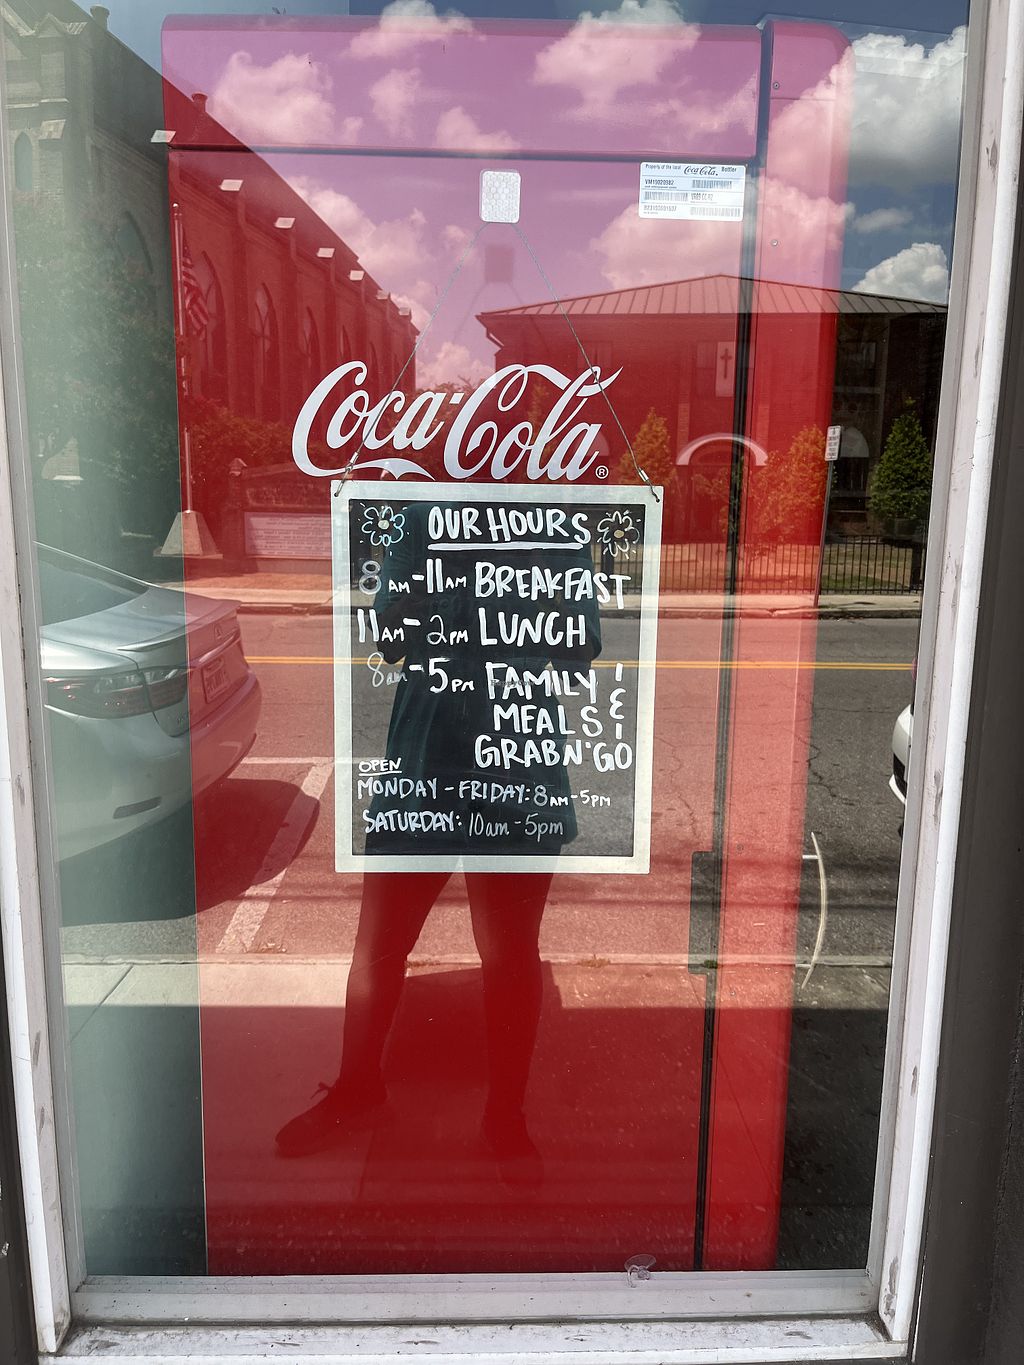 Property of the local Coca-Cola Bottler
Coca-Cola®
OUR HOURS
8 AM-11AM BREAKFAST
11AM-2PM LUNCH
8am-5PM FAMILY &
MEALS
GRAB N' GO
OPEN
MONDAY - FRIDAY: 8AM-5PM
SATURDAY: 10am-5pm